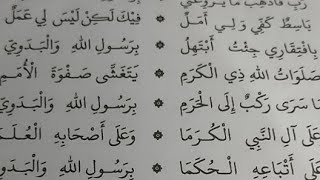 رَبِّ فَاذْهَبْ مَا يُرَوِّعُنِي
بَاسِطٌ كَفِّي وَلِي أَمَلٌ ۞ فِيْكَ لَكِنْ لَيْسَ لِي عَمَلٌ
بِافْتِقَارِي جِئْتُ أَبْتَهِلُ ۞ بِرَسُولِ اللهِ وَالْبَدَوِيِّ
صَلَوَاتُ اللهِ ذِي الْكَرَمِ ۞ يَتَغَشَّى صَفْوَةَ الْأُمَمِ
مَا سَرَى رَكْبٌ إِلَى الْحَرَمِ ۞ بِرَسُولِ اللهِ وَالْبَدَوِيِّ
وَعَلَى آلِ النَّبِي الْكُرَمَا ۞ وَعَلَى أَصْحَابِهِ الْعُلَمَا
وَعَلَى أَتْبَاعِهِ الْحُكَمَا ۞ بِرَسُولِ اللهِ وَالْبَدَوِيِّ